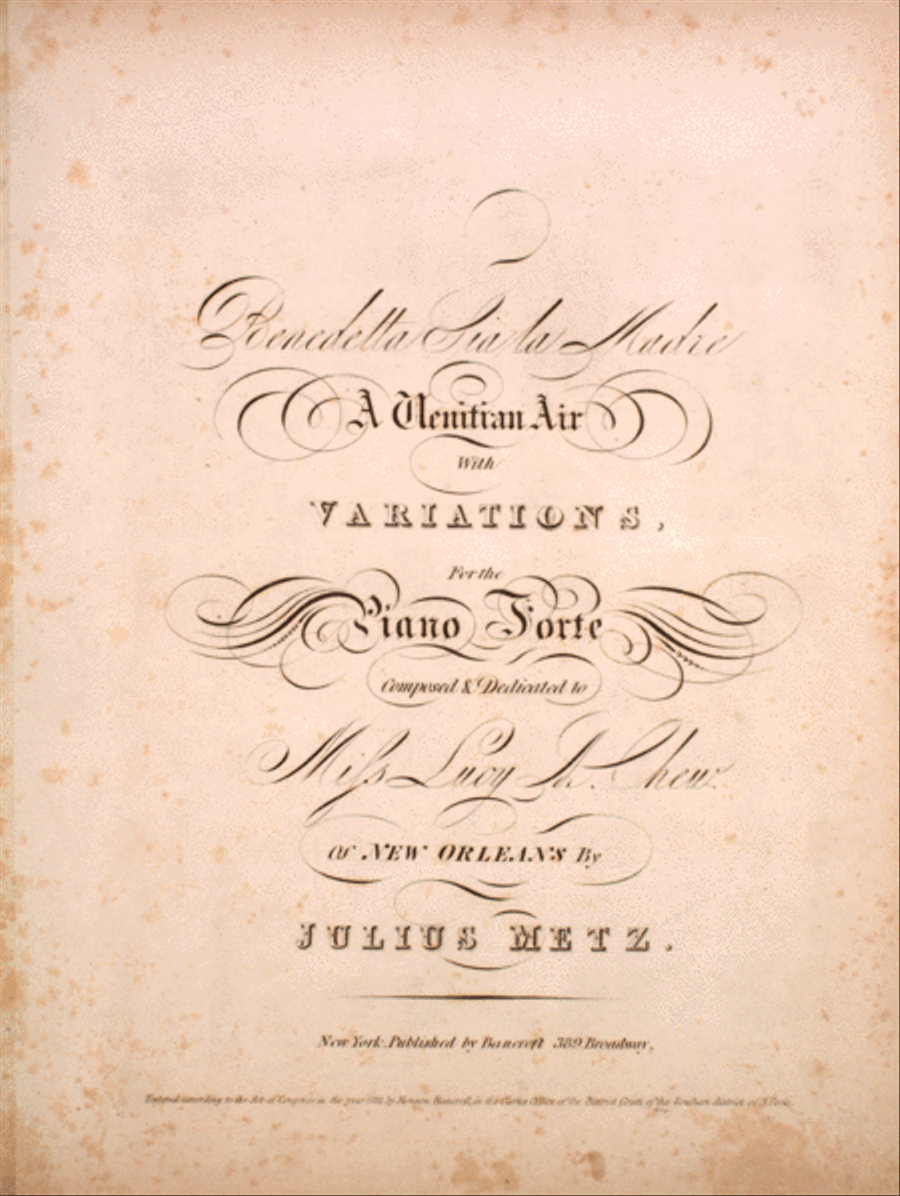 Benedetta Sia la Madre
A Venitian Air
With
VARIATIONS,
For the
Piano Forte
Composed & Dedicated to
Miss Lucy A. Chew.
Of NEW ORLEANS By
JULIUS METZ.
New York. Published by Bancroft 389 Broadway.
Entered according to the Act of Congress in the year by Bancroft, in the Clerks Office of the District Court of the Southern district of N. York.